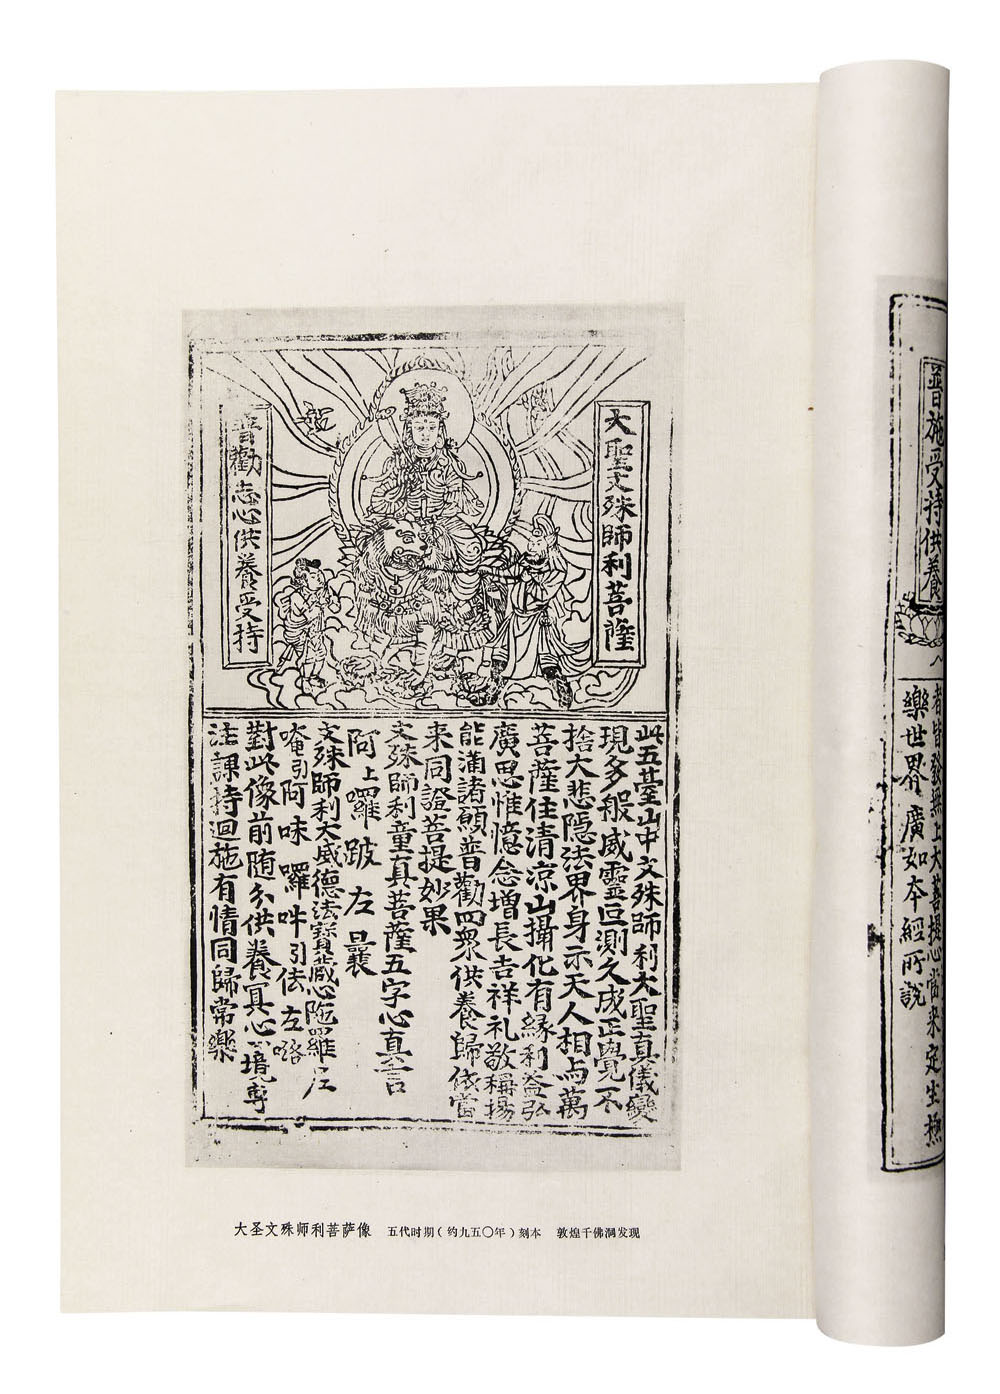 大聖文殊師利菩薩
普勸志心供養受持
此五臺山中文殊師利大聖真儀變
現多般威靈叵測久成正覺不
捨大悲隱法界身示天人相与萬
菩薩住清涼山攝化有緣利益弘
廣思惟憶念增長吉祥礼敬稱揚
能滿諸願普勸四衆供養歸依當
来同證菩提妙果
文殊師利童真菩薩五字心真言
阿上囉跛左曩
文殊師利大威德法寶藏心陁羅尼
唵引阿味囉吽引佉左咯
對此像前随分供養冥心一境專
注課持迴施有情同歸常樂
大圣文殊师利菩萨像 五代时期(约九五〇年)刻本 敦煌千佛洞发现
普施受持供養
者皆發無上大菩提心當来定生
樂世界廣如本經所說